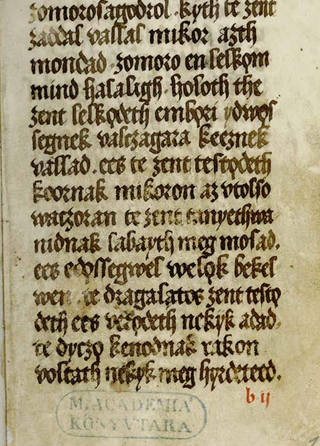 zomorosagodrol · kyth te zent
zaddal vallal mikor azth
mondad · zomoro en lelkom
mind halaligh · holoth the
zent lelkodeth embori ydwos
segnek valczagara keeznek
vallad · ees te zent testodeth
koornak mikoron az vtolso
waczoran te zent tanyethwa
nidnak labayth meg mosad ·
ees edossegwel welok bekel
wen · te dragalatos zent testo
deth ees veredeth nekyk adad ·
te dyczo kenodnak rakon
voltath nekyk meg hyrdeteed ·
b ij
M. ACADEMIA
KÖNYVTARA